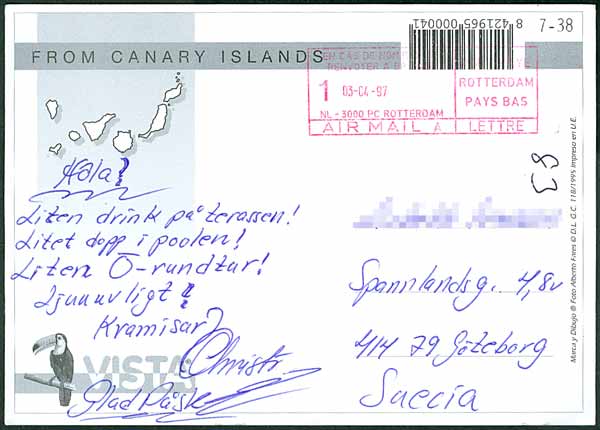 8 421965 000041
7-38
FROM CANARY ISLANDS
EN CAS DE NON
RENVOYER A
1 03-04-97
NL - 3000 PC ROTTERDAM
ROTTERDAM
PAYS BAS
AIR MAIL A LETTRE
E8
Hola!
Liten drink på terassen!
Litet dopp i poolen!
Liten Ö-rundtur!
Ljuuuvligt!
Kramisar
Christ
Glad Påsk
VISTA
Spannlandsg. 4, 8v
414 79 Göteborg
Suecia
Marca y Dibujo ® Foto Alberto Fares © D.L. G.C. 118/1995 Impreso en U.E.